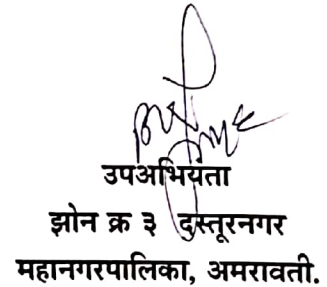 उपअभियंता
झोन क्र ३ दुस्तूरनगर
महानगरपालिका, अमरावती.